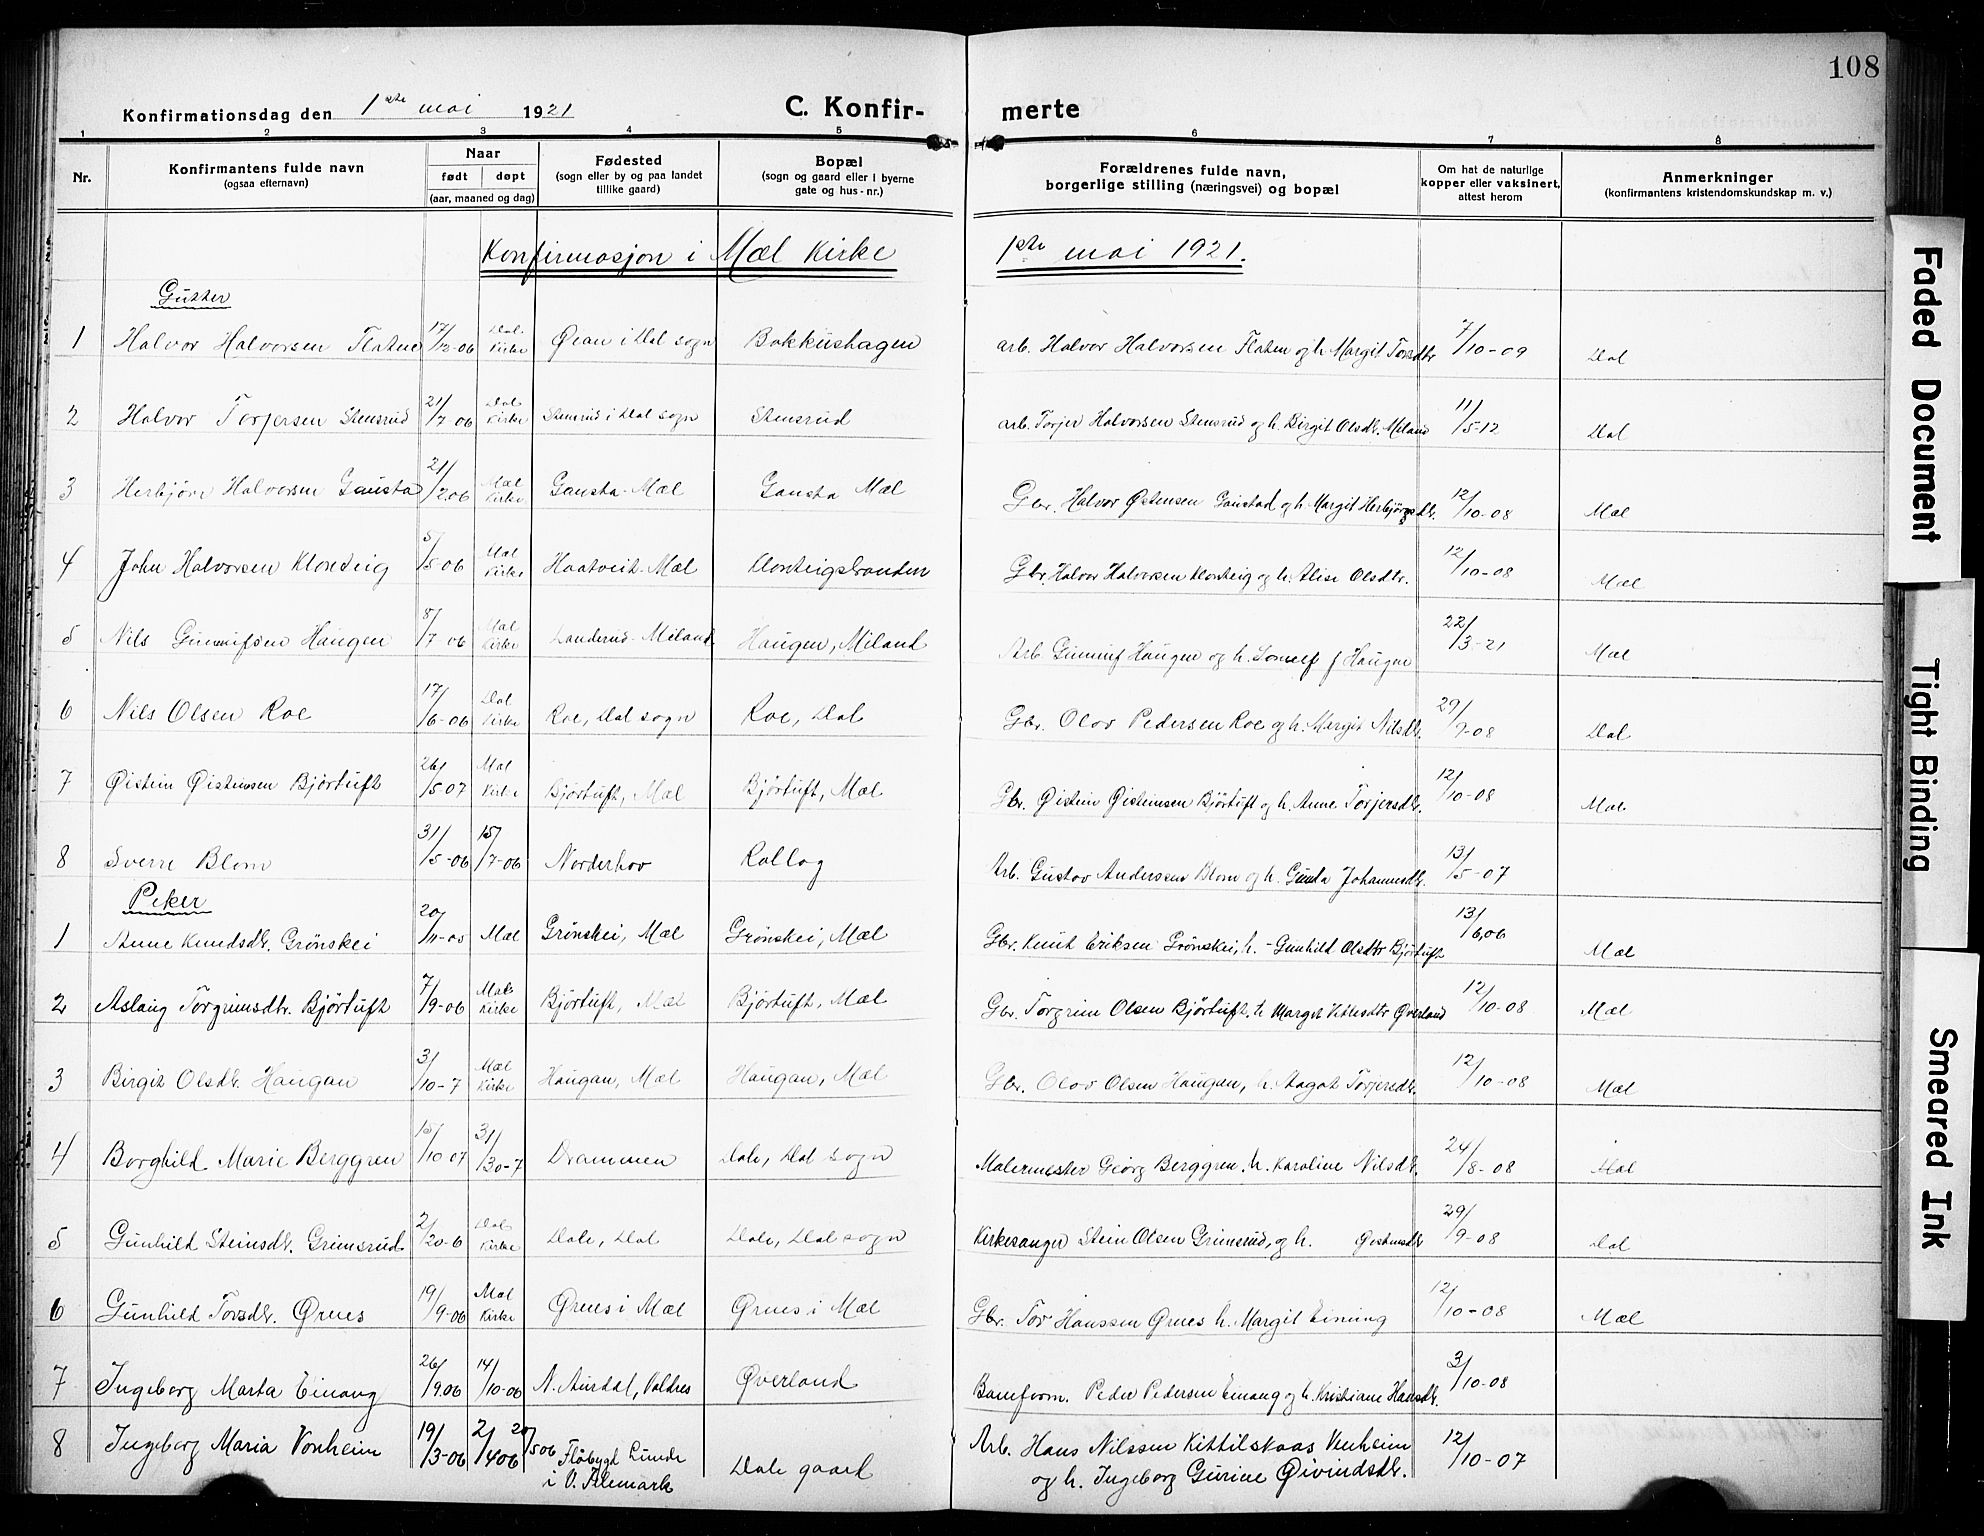 108
Konfirmationsdag den 1ste mai 1921
C. Konfir-
merte
1 2 3 4 5 6 7 8
Nr.
Konfirmantens fulde navn
(ogsaa efternavn)
Naar
født døpt
(aar, maaned og dag)
Fødested
(sogn eller by og paa landet
tillike gaard)
Bopæl
(sogn og gaard eller i byerne
gate og hus-nr.)
Forældrenes fulde navn,
borgerlige stilling (næringsvei) og bopæl
Om hat de naturlige
kopper eller vaksinert,
attest herom
Anmerkninger
(konfirmantens kristendomskundskap m. v.)
Konfirmasjon i Mæl Kirke 1ste mai 1921.
Gutter
1 Halvor Halvorsen Flaten 17/12-06 Dal Kirke Øian i Dal sogn Bakkushagen arb. Halvor Halvorsen Flaten og h. Margit Torsdtr 7/10-09 Dal
2 Halvor Torjersen Stensrud 21/7 06 Dal Kirke Stensrud i Dal sogn Stensrud arb. Torjer Halvorsen Stensrud og h. Birgit Olsdtr. Miland 11/5-12 Dal
3 Herbjørn Halvorsen Gausta 21/2 06 Mæl Kirke Gausta-Mæl Gausta Mæl Gbr. Halvor Østensen Gaustad og h. Margit Herbjørnsdtr. 12/10-08 Mæl
4 John Halvorsen Klonteig 5/5-06 Mæl Kirke Haatveit-Mæl Klonteigstranden Gbr. Halvor Halvorsen Klonteig og h. Alise Olsdtr. 12/10-08 Mæl
5 Nils Gunnufsen Haugen 8/7 06 Mæl Kirke Sanderud-Miland Haugen, Miland Arb. Gunnuf Haugen og h. f Haugen 22/3-21 Mæl
6 Nils Olsen Roe 17/6-06 Dal Kirke Roe, Dal sogn Roe, Dal Gbr. Olov Pedersen Roe og h. Margit Nilsdtr. 29/9-08 Dal
7 Øistein Øisteinsen Bjørtuft 26/5 07 Mæl Kirke Bjørtuft, Mæl Bjørtuft, Mæl Gbr. Øistein Øisteinsen Bjørtuft og h. Anne Torjersdtr. 12/10-08 Mæl
8 Sverre Blom 31/5-06 15/7-06 Norderhov Rollag Arb. Gustav Anderssen Blom og h. Gunda Johannesdtr. 13/5-07
Peker
1 Anne Knudsdtr. Grønskei 20/11-05 Mæl Grønskei, Mæl Grønskei, Mæl Gbr. Knut Eriksen Grønskei, h. - Gunhild Olsdtr Bjørtuft 13/6,06 Mæl
2 Aslaug Torgrimsdtr. Bjørtuft 7/9-06 Mæl Kirke Bjørtuft, Mæl Bjørtuft, Mæl Gbr. Torgrim Olsen Bjørtuft, h Margit Kittilsdtr Øverland 12/10-08 Mæl
3 Birgit Olsdtr. Haugan 3/10-7 Mæl Kirke Haugan, Mæl Haugan, Mæl Gbr. Olov Olsen Haugan, h. Aagot Torjersdtr. 12/10-08 Mæl
4 Borghild Marie Berggren 15/10 07 31/30-7 Drammen Dale, Dal sogn Malermester Georg Berggren, h. Karoline Nilsdtr. 24/8-08 Dal
5 Gunhild Steinsdtr. Grimsrud 2/20-6 Dal Kirke Dale, Dal Dale, Dal sogn Kirkesanger Stein Olsen Grimsrud, og h. Østensdtr 29/9-08 Dal
6 Gunhild Torsdtr. Ørnes 19/9-06 Mæl Kirke Ørnes i Mæl Ørnes i Mæl Gbr. Tor Hanssen Ørnes h. Margit Einung 12/10-08 Mæl
7 Ingeborg Marta Einang 26/9 06 14/10-06 N. Aurdal, Valdres Øverland Baneform. Peder Pedersen Einang og h. Kristiane Hansdtr. 3/10-08
8 Ingeborg Maria Vonheim 19/3-06 2/4 06 20/5 06 Fløbygd Lunde
i V. Telemark Dale gaard Arb. Hans Nilssen Kittilskaas Venheim
og h. Ingeborg Gurine Øivindsdtr. 12/10-07
Faded Document
Tight Binding
Smeared Ink